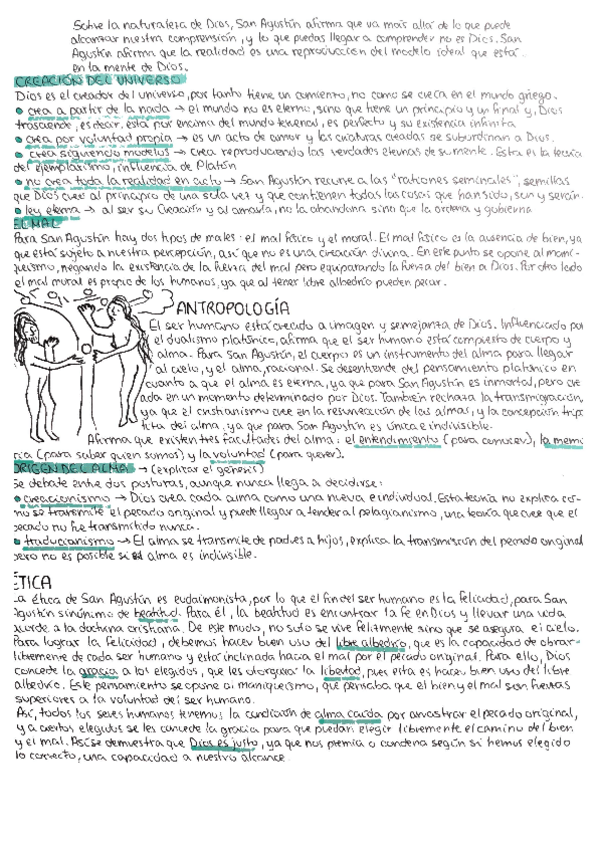 Sobre la naturaleza de Dios, San Agustín afirma que va más allá de lo que puede
alcanzar nuestra comprensión, y lo que puedas llegar a comprender no es Dios. San
Agustín afirma que la realidad es una reproducción del modelo ideal que está
en la mente de Dios.
CREACIÓN DEL UNIVERSO
Dios es el creador del universo, por tanto tiene un comienzo, no como se creía en el mundo griego.
• crea a partir de la nada → el mundo no es eterno, sino que tiene un principio y un final y, Dios
trasciende, es decir, está por encima del mundo terrenal, es perfecto y su existencia infinita
• crea por voluntad propia → es un acto de amor y las criaturas creadas se subordinan a Dios.
• crea siguiendo modelos → crea reproduciendo las verdades eternas de su mente. Esta es la teoría
del ejemplarismo, influencia de Platón
• no crea toda la realidad en acto → San Agustín recurre a las "rationes seminales", semillas
que Dios cree al principio de una sola vez y que contienen todas las cosas que han sido, son y serán.
• ley eterna → al ser su Creación y al amarla, no la abandona sino que la ordena y gobierna
EL MAL
Para San Agustín hay dos tipos de males: el mal físico y el moral. El mal físico es la ausencia de bien, ya
que está sujeto a nuestra percepción, así que no es una creación divina. En este punto se opone al mani-
queísmo, negando la existencia de la fuerza del mal pero equiparando la fuerza del bien a Dios. Por otro lado
el mal moral es propio de los humanos, ya que al tener libre albedrío pueden pecar.
ANTROPOLOGÍA
El ser humano está creado a imagen y semejanza de Dios. Influenciado por
el dualismo platónico, afirma que el ser humano está compuesto de cuerpo y
alma. Para San Agustín, el cuerpo es un instrumento del alma para llegar
al cielo, y el alma, racional. Se desentiende del pensamiento platónico en
cuanto a que el alma es eterna, ya que para San Agustín es inmortal, pero cre
ada en un momento determinado por Dios. También rechaza la transmigración,
ya que el cristianismo cree en la resurrección de las almas, y la concepción trip
tita del alma, ya que para San Agustín es única e indivisible.
Afirma que existen tres facultades del alma: el entendimiento (para conocer), la memo
ria (para saber quien somos) y la voluntad (para querer).
ORIGEN DEL ALMA → (explicar el génesis)
Se debate entre dos posturas, aunque nunca llega a decidirse:
• creacionismo → Dios crea cada alma como una nueva e individual. Esta teoría no explica có-
mo se transmite el pecado original y puede llegar a tender al pelagianismo, una teoría que cree que el
pecado no fue transmitido nunca.
• traducianismo → El alma se transmite de padres a hijos, explica la transmisión del pecado original
pero no es posible si el alma es indivisible.
ÉTICA
La ética de San Agustín es eudaimonista, por lo que el fin del ser humano es la felicidad, para San
Agustín sinónimo de beatitud. Para él, la beatitud es encontrar la fe en Dios y llevar una vida
acorde a la doctrina cristiana. De este modo, no solo se vive felizmente sino que se asegura el cielo.
Para lograr la felicidad, debemos hacer buen uso del libre albedrío, que es la capacidad de obrar
libremente de cada ser humano y está inclinada hacia el mal por el pecado original. Para ello, Dios
concede la gracia a los elegidos, que les otorgará la libertad, pues esta es hacer buen uso del libre
albedrío. Este pensamiento se opone al maniqueísmo, que pensaba que el bien y el mal son fuerzas
superiores a la voluntad del ser humano.
Así, todos los seres humanos tenemos la condición de alma caída por arrastrar el pecado original,
y a ciertos elegidos se les concede la gracia para que puedan elegir libremente el camino del bien
y el mal. Así se demuestra que Dios es justo, ya que nos premia o condena según si hemos elegido
lo correcto, una capacidad a nuestro alcance.